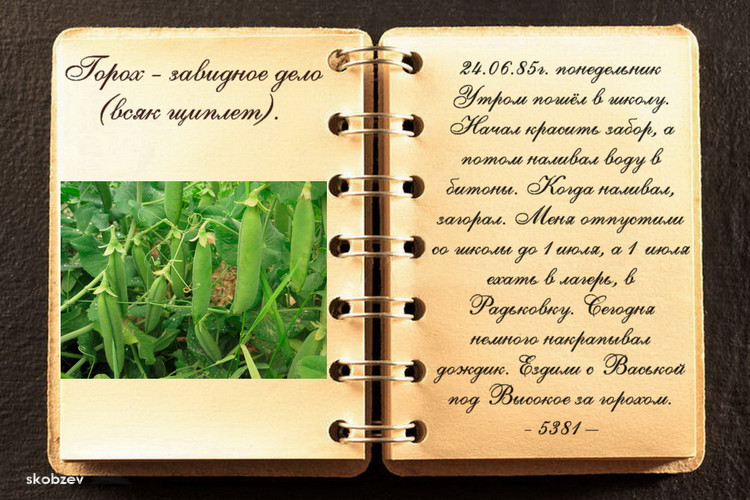 Горох - завидное дело
(всяк щиплет).
24.06.85г. понедельник
Утром пошёл в школу.
Начал красить забор, а
потом наливал воду в
битоны. Когда наливал,
загорал. Меня отпустили
со школы до 1 июля, а 1 июля
ехать в лагерь, в
Радьковку. Сегодня
немного накрапывал
дождик. Ездили с Васькой
под Высокое за горохом.
- 5381 —
skobzev